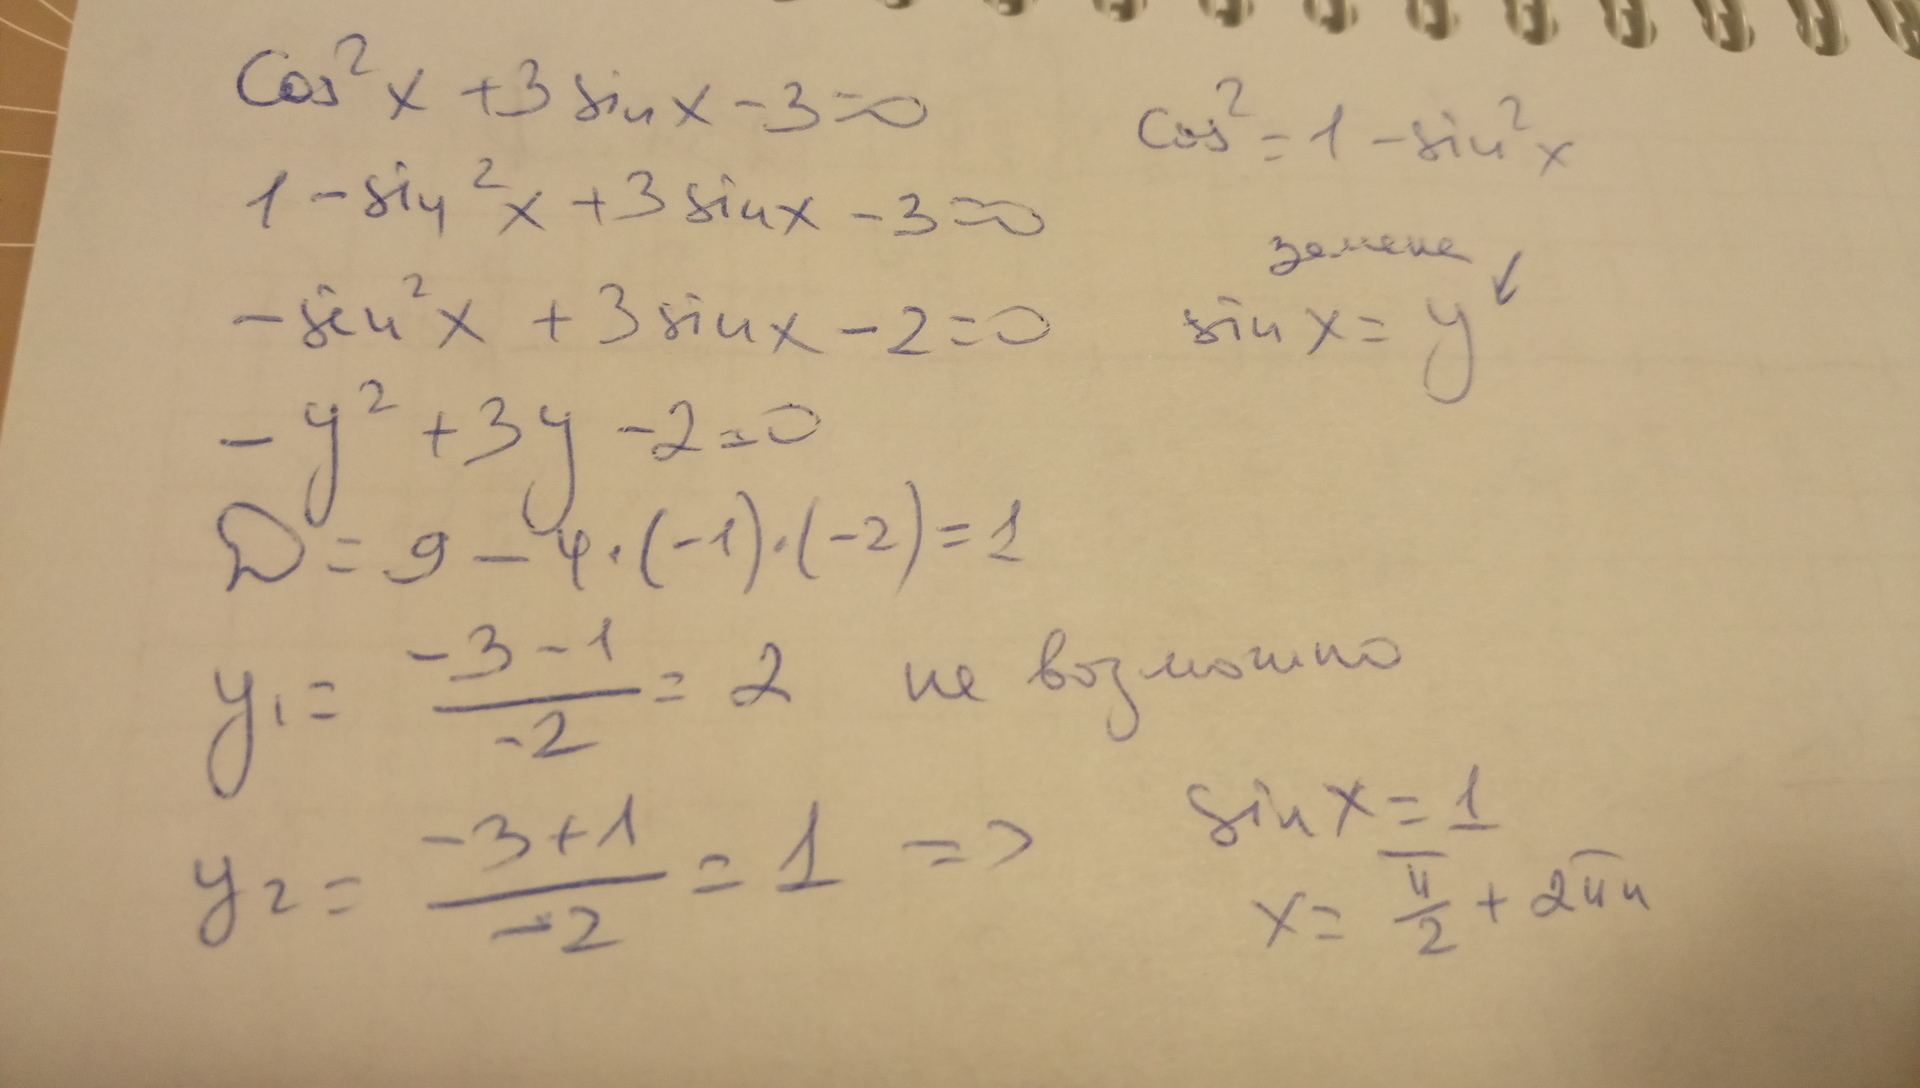 cos²x + 3 sinx - 3 = 0
cos² = 1 - sin²x
1 - sin²x + 3 sinx - 3 = 0
замена ↙
-sin²x + 3 sinx - 2 = 0
sin x = y
-y² + 3y - 2 = 0
D = 9 - 4·(-1)·(-2) = 1
y₁ = (-3-1)/(-2) = 2 не возможно
y₂ = (-3+1)/(-2) = 1 =>
sin x = 1
x = π/2 + 2πn